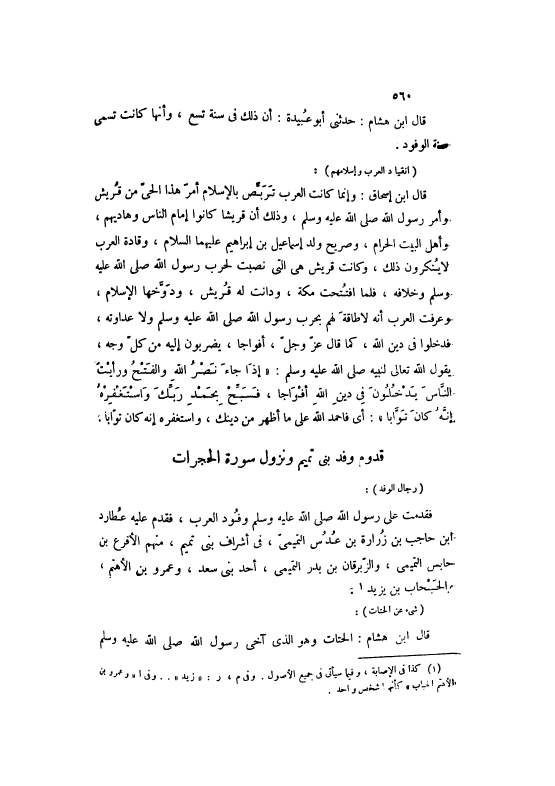 ٥٦٠
قال ابن هشام : حدثنى أبو عُبيدة : أن ذلك فى سنة تسع ، وأنها كانت تسمى
سنة الوفود .
( انقياد العرب وإسلامهم ) :
قال ابن إسحاق : وإنما كانت العرب تَرَبَّص بالإسلام أمرَ هذا الحىّ من قُريش
وأمر رسول الله صلى الله عليه وسلم ، وذلك أن قريشا كانوا إمام الناس وهاديهم ،
وأهل البيت الحرام ، وصريح ولد إسماعيل بن إبراهيم عليهما السلام ، وقادة العرب
لايُنكرون ذلك ، وكانت قريش هى التى نصبت لحرب رسول الله صلى الله عليه
وسلم وخلافه ، فلما افتُتحت مكة ، ودانت له قُريش ، ودوَّخها الإسلام ،
وعرفت العرب أنه لاطاقةَ لهم بحرب رسول الله صلى الله عليه وسلم ولا عداوته ،
فدخلوا فى دين الله ، كما قال عزّ وجلّ ، أفواجا ، يضربون إليه من كلّ وجه ،
يقول الله تعالى لنبيه صلى الله عليه وسلم : « إذَا جاءَ نَصْرُ اللهِ والفَتْحُ ورأيْتَ
النَّاسَ يَدْخُلُونَ فى دينِ اللهِ أفْوَاجا ، فَسَبِّحْ بِحَمْدِ رَبِّكَ وَاسْتَغْفِرْهُ
إنَّهُ كانَ تَوَّابا » : أى فاحمد الله على ما أظهر من دينك ، واستغفره إنه كان توّابا .
قدوم وفد بنى تميم ونزول سورة الحجرات
( رجال الوفد ) :
فقدمت على رسول الله صلى الله عليه وسلم وفُود العرب ، فقدم عليه عُطارد
ابن حاجب بن زُرارة بن عُدُس التميمىّ ، فى أشراف بنى تميم ، منهم الأقرع بن
حابس التميمى ، والزّبرقان بن بدر التميمى ، أحد بنى سعد ، وعمرو بن الأهتم ،
والحَبْحاب بن يزيد ١ .
( شىء عن الحتات ) :
قال ابن هشام : الحتات وهو الذى آخى رسول الله صلى الله عليه وسلم
(١) كذا فى الإصابة ، وفيما سيأتى فى جميع الأصول . وفى م ، ر : « زيد » .. وفى ا « وعمرو بن
الأهتم الحباب » كأنهما شخص واحد .